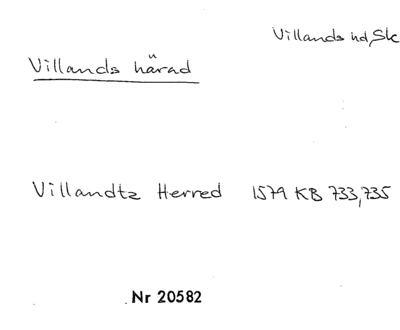 Villands hd, Sk
Villands härad
Villandtz Herred 1579 KB 733,735
Nr 20582